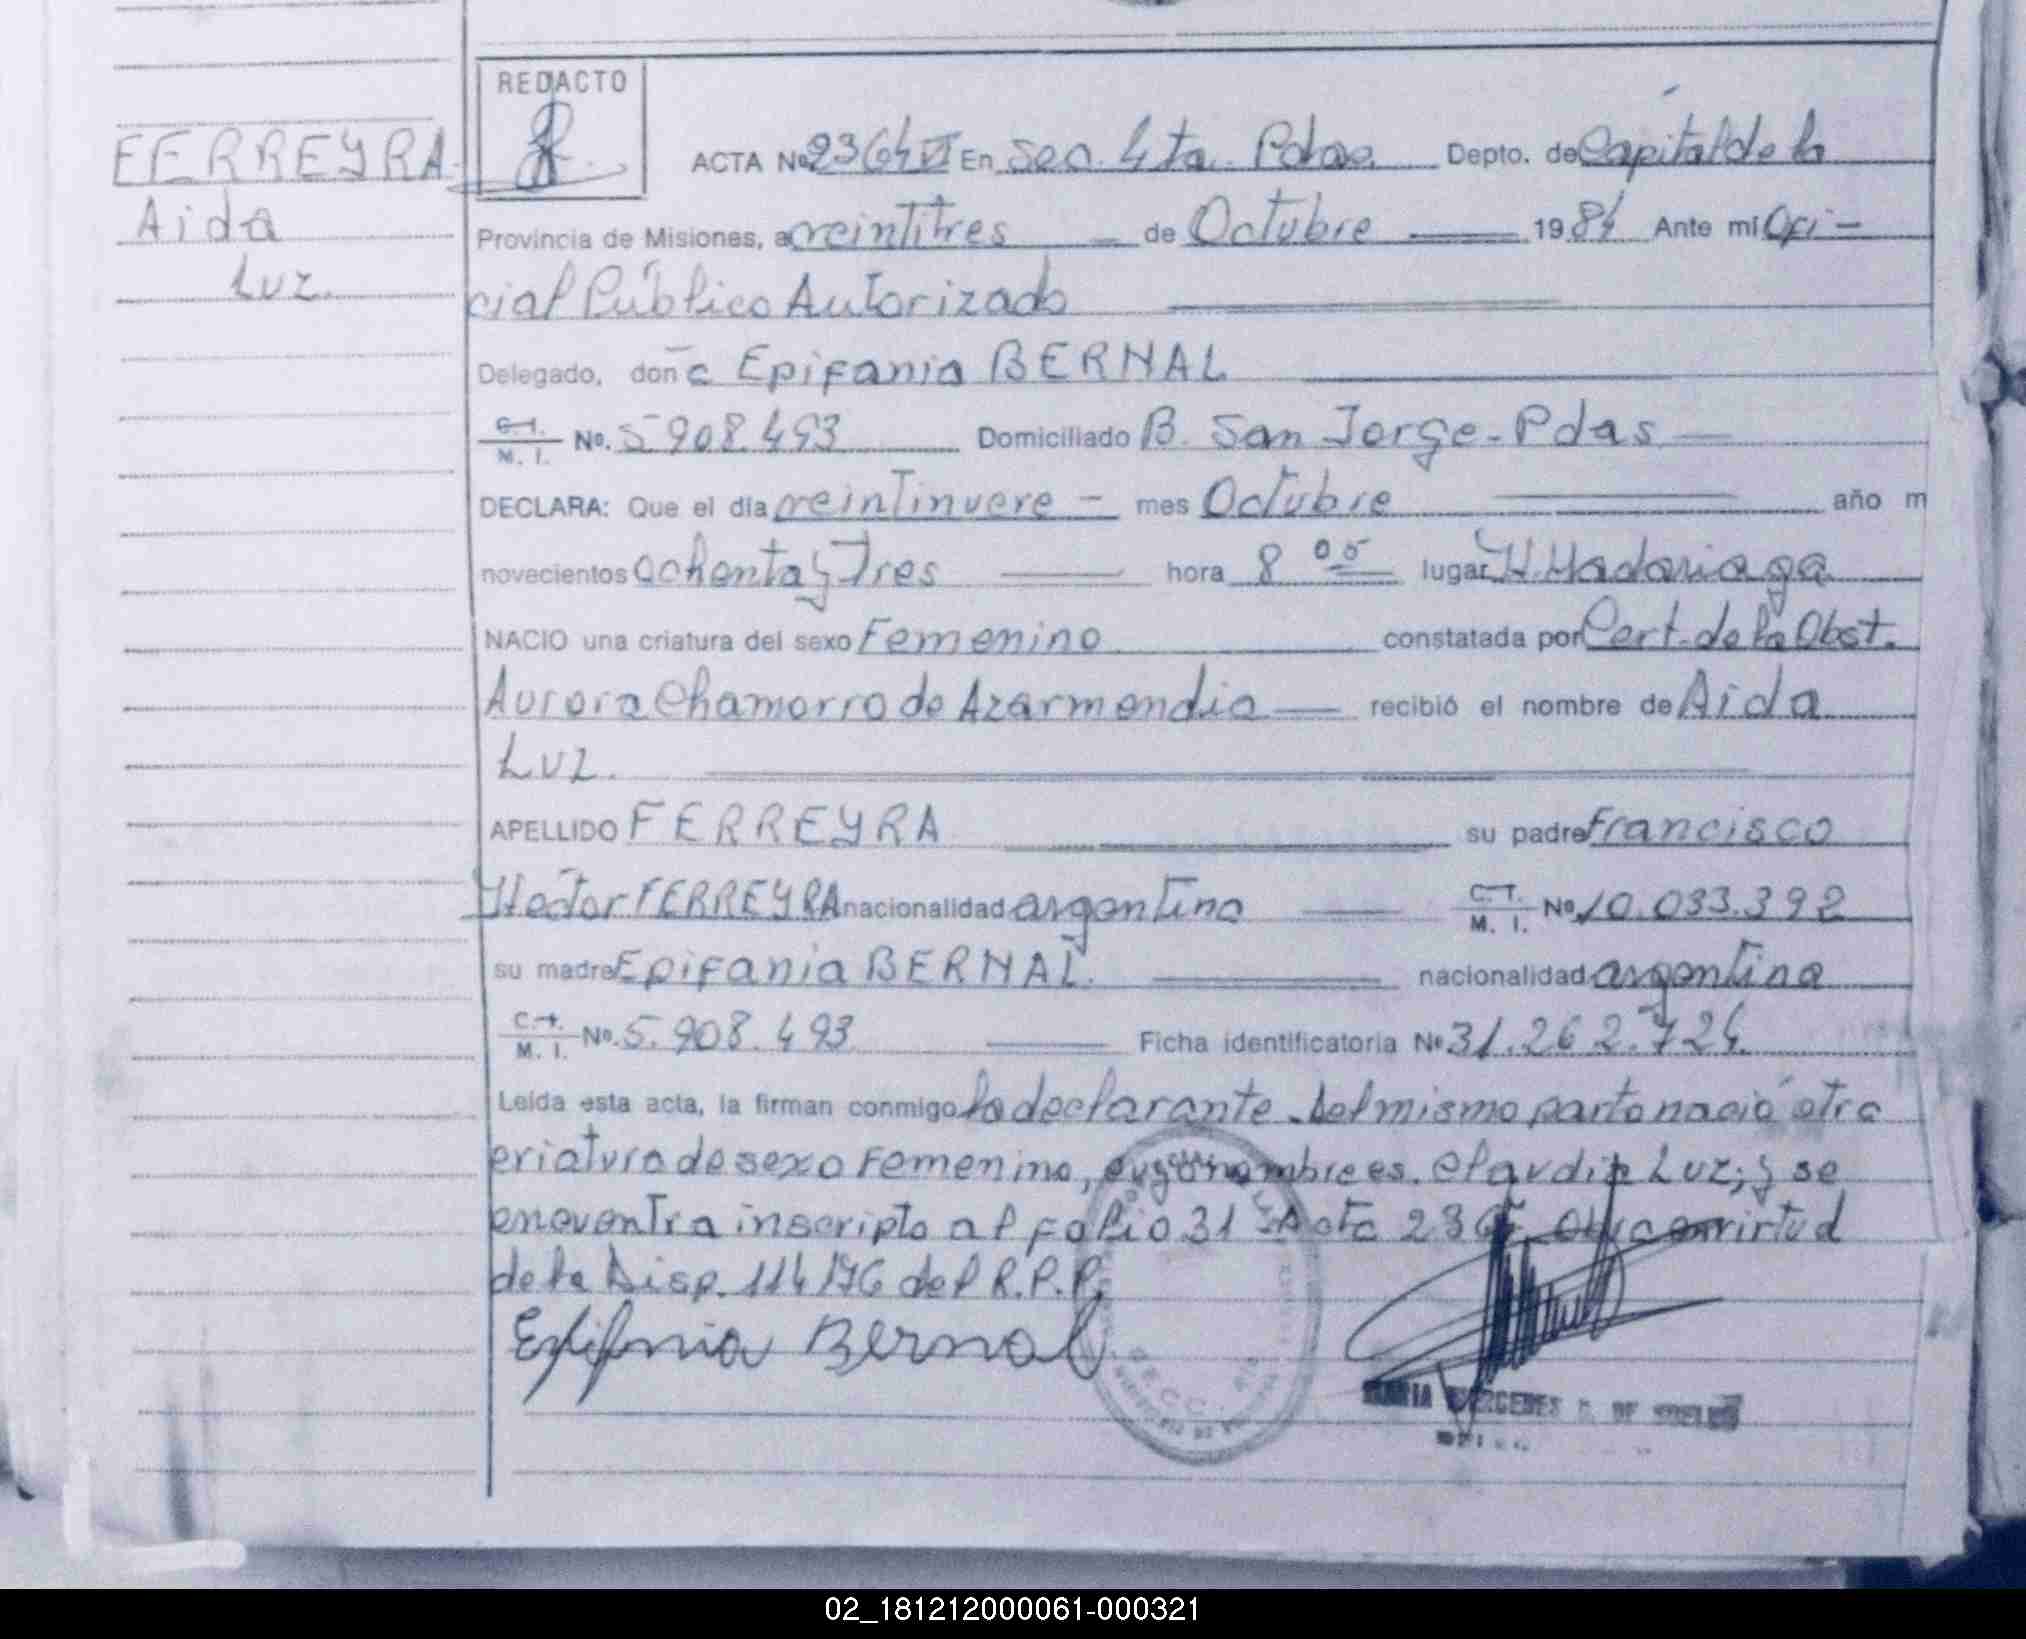 REDACTO
FERREYRA
Aida
Luz.
ACTA No 2364 VI En Sec. 4ta. Pdas. Depto. de Capital de la
Provincia de Misiones, a veintitres de Octubre 1984 Ante mi Ofi-
cial Público Autorizado
Delegado, doña Epifania BERNAL
C.I. M. I. No. 5.908.493 Domiciliado B. San Jorge - Pdas
DECLARA: Que el día veintinueve - mes Octubre año m
novecientos ochenta y Tres hora 8 05 lugar H. Madariaga
NACIO una criatura del sexo Femenino constatada por Cert. de la Obst.
Aurora Chamorro de Azarmendia recibió el nombre de Aida
Luz.
APELLIDO FERREYRA su padre Francisco
Héctor FERREYRA nacionalidad argentina C.I. M. I. No 10.033.392
su madre Epifania BERNAL. nacionalidad argentina
C.I. M. I. No. 5.908.493 Ficha identificatoria No 31.262.724.
Leída esta acta, la firman conmigo la declarante. Del mismo parto nació otra
criatura de sexo Femenino, cuyo nombre es. Claudia Luz; y se
encuentra inscripto al folio 31 Acta virtud
de la Disp. 114/76 del R.P.P.
Epifania Bernal
MARIA MERCEDES DE
02_181212000061-000321